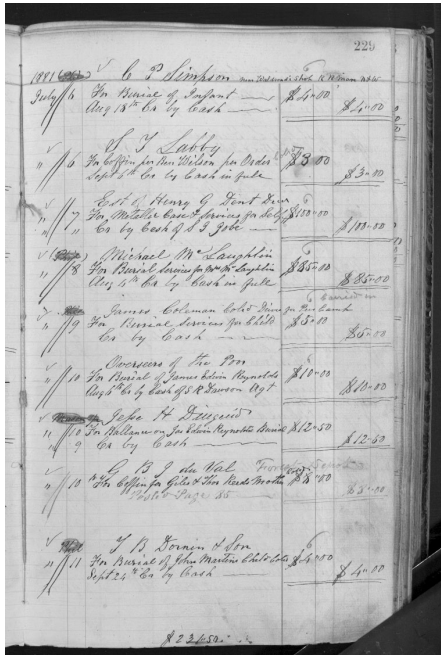 225
1881 C P Simpson near Rolsend Shop R Home
July 6 For Burial of Infant $4"00
Aug 18th Cr by Cash $4"00
S T Labby
" 6 For Coffin per Wilson per Order $3"00
Sept 6th Cr by Cash in full $3"00
Est of Henry G Dent Decd
" 7 For Metallic Case & Services for Self $100"00
" " Cr by Cash of S J Gobe $100"00
Michael McLaughlin
" 8 For Burial Services for Mrs McLaughlin $85"00
Aug 6th Cr by Cash in full $85"00
James Coleman Cold
" 9 For Burial Services for Child $5"00
Cr by Cash $5"00
Overseers of the Poor
" 10 For Burial of James Edwin Reynolds $10"00
Aug 6th Cr by Cash of S R Dawson Agt $10"00
Jesse H Diuguid
" 10 For Ballance on Jas Edwin Reynolds Burial $12"50
" 9 Cr by Cash $12"50
G B J du Val
" 10 For Coffin for Giles & Thos Mother $8"00
Posted Page 85 $8"00
T B Dornin & Son
" 11 For Burial of John Martins Child Cold $4"00
Sept 24th Cr by Cash $4"00